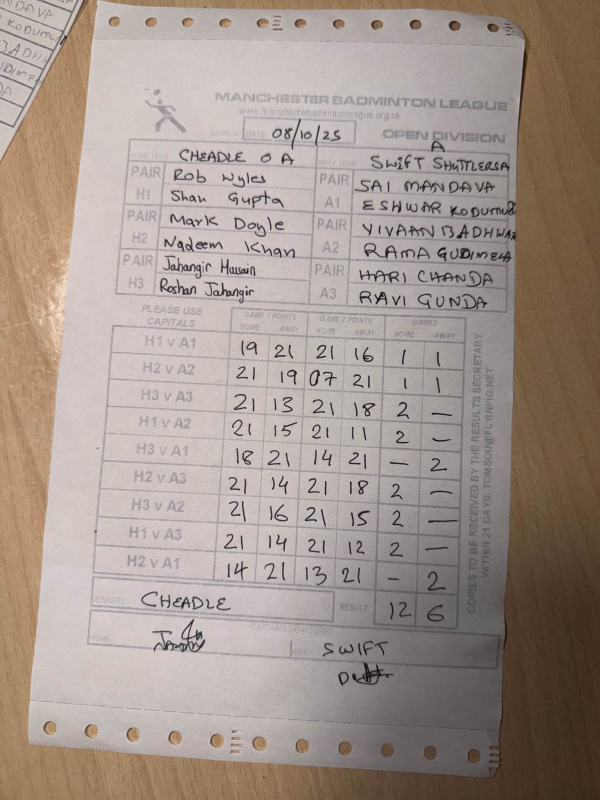 NDAVA
KODUMU
BADH
UDIME
DA
MANCHESTER BADMINTON LEAGUE
www.manchesterbadmintonleague.org.uk
DATE 08/10/25 OPEN DIVISION
A
HOME TEAM CHEADLE O A AWAY TEAM SWIFT SHUTTLERSA
PAIR H1 Rob Wyles PAIR A1 SAI MANDAVA
Shan Gupta ESHWAR KODUMU
PAIR H2 Mark Doyle PAIR A2 VIVAAN BADHWAR
Nadeem Khan RAMA GUDIMELA
PAIR H3 Jahangir Hussain PAIR A3 HARI CHANDA
Roshan Jahangir RAVI GUNDA
PLEASE USE CAPITALS GAME 1 POINTS GAME 2 POINTS GAMES
HOME AWAY HOME AWAY HOME AWAY
H1 v A1 19 21 21 16 1 1
H2 v A2 21 19 07 21 1 1
H3 v A3 21 13 21 18 2 —
H1 v A2 21 15 21 11 2 —
H3 v A1 18 21 14 21 — 2
H2 v A3 21 14 21 18 2 —
H3 v A2 21 16 21 15 2 —
H1 v A3 21 14 21 12 2 —
H2 v A1 14 21 13 21 - 2
WINNERS CHEADLE RESULT 12 6
CAPTAINS SIGNATURES
HOME AWAY SWIFT
COPIES TO BE RECEIVED BY THE RESULTS SECRETARY
WITHIN 21 DAYS. TOMSOU@FLYINPIG.NET